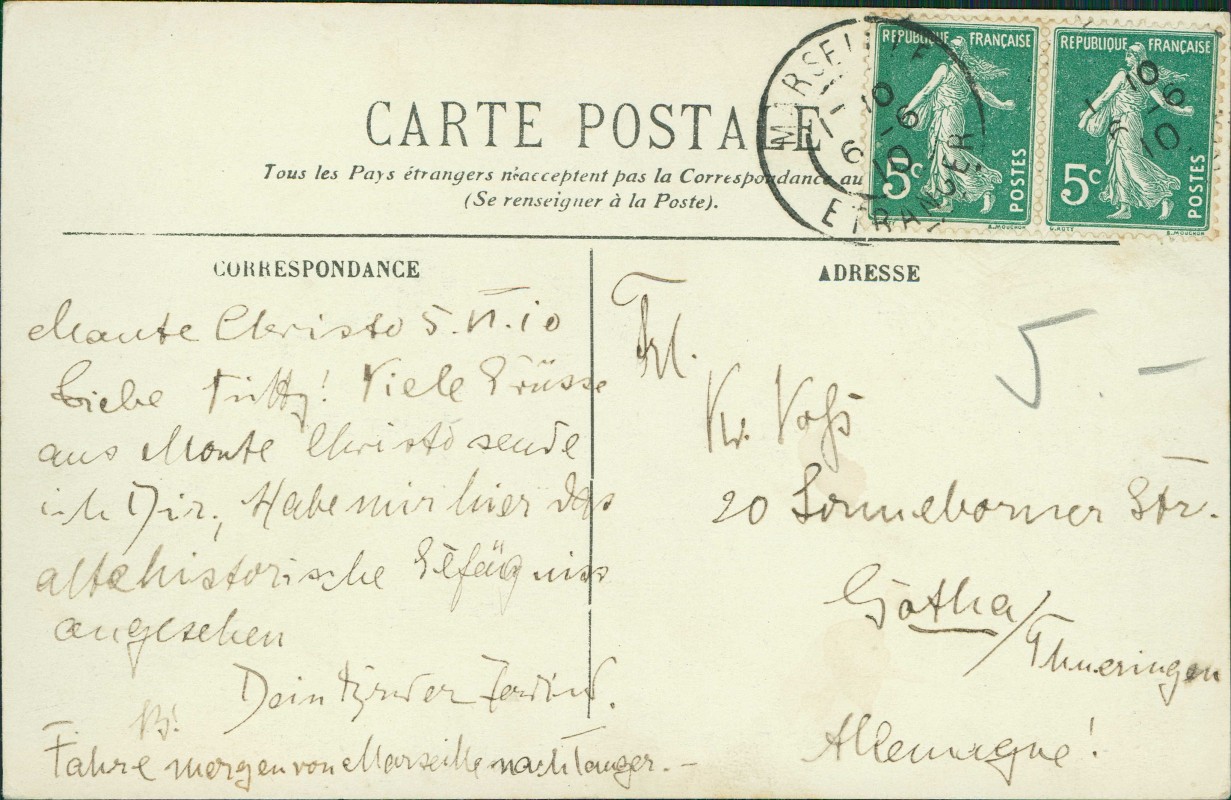 CARTE POSTALE
Tous les Pays étrangers n'acceptent pas la Correspondance au
(Se renseigner à la Poste).
MARSEILLE
ETRANGER
10
6 -6
10
REPUBLIQUE FRANÇAISE
5c POSTES
REPUBLIQUE FRANÇAISE
5c POSTES
CORRESPONDANCE
Monte Christo 5.VI.10
Liebe Kitty! Viele Grüsse
aus Monte Christo sende
ich Dir, Habe mir hier das
altehistorische Gefängniss
angesehen
Dein Bruder Ferdind.
Fahre morgen von Marseille nach Tanger.-
ADRESSE
Frl.
Voß
20 Sonneborner Str.
Gotha/
Thueringen
Allemagne!
5.-